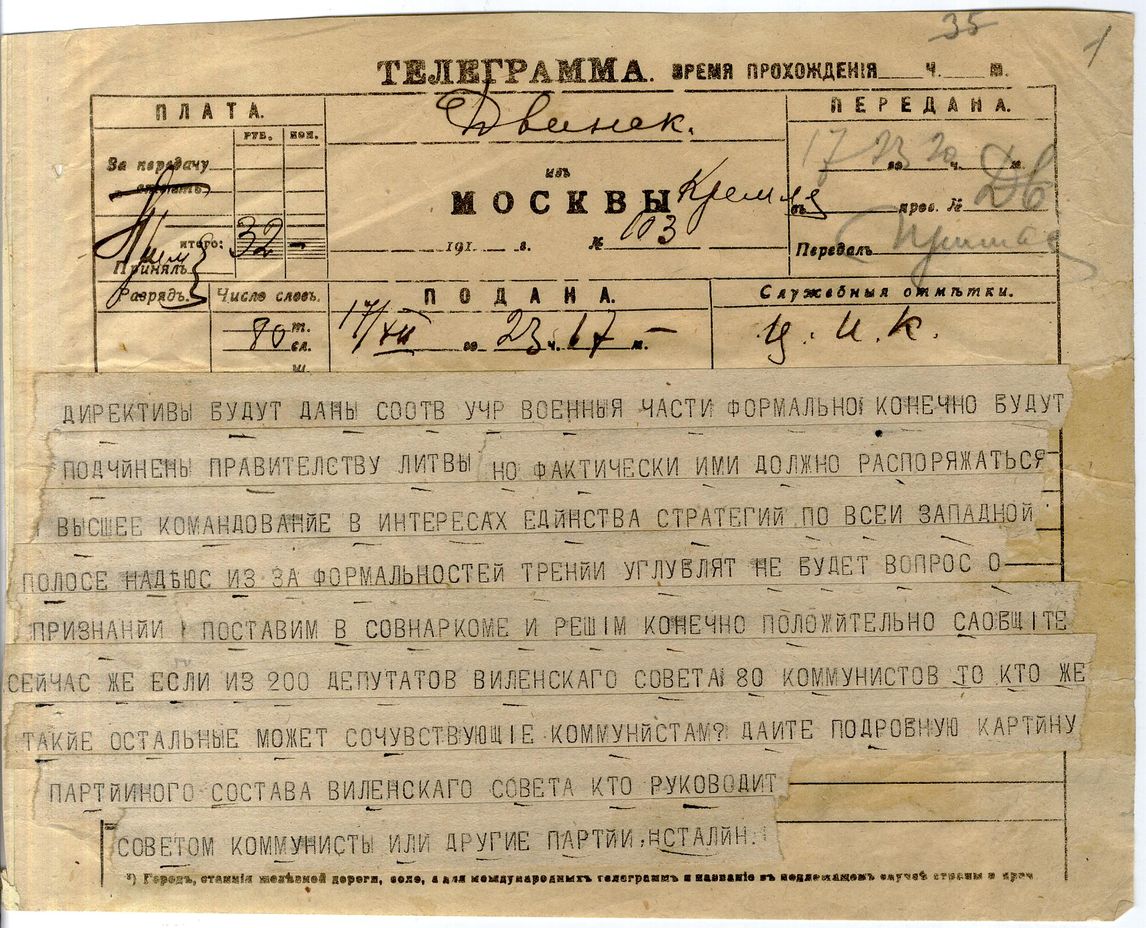 35
1
ТЕЛЕГРАММА. ВРЕМЯ ПРОХОЖДЕНІЯ Ч. М.
ПЛАТА.
РУБ. КОП.
За передачу
ИТОГО: 32 -
Принялъ
Разрядъ. Число словъ.
80 т. сл.
ш.
Двинск.
изъ
МОСКВЫ Кремля
191 г. № 103
ПЕРЕДАНА.
17 го 23 ч. 20 м.
въ пров. № Дв
Передалъ
ПОДАНА.
17/XII го 23 ч. 17 м. -
Служебныя отмѣтки.
Ц. И. К.
ДИРЕКТИВЫ БУДУТ ДАНЫ СООТВ УЧР ВОЕННЫЯ ЧАСТИ ФОРМАЛЬНО КОНЕЧНО БУДУТ
ПОДЧЙНЕНЫ ПРАВИТЕЛСТВУ ЛИТВЫ НО ФАКТИЧЕСКИ ИМИ ДОЛЖНО РАСПОРЯЖАТЬСЯ
ВЫСШЕЕ КОМАНДОВАНЙЕ В ИНТЕРЕСАХ ЕДЙНСТВА СТРАТЕГИЙ ПО ВСЕИ ЗАПАДНОЙ
ПОЛОСЕ НАДѢЮС ИЗ ЗА ФОРМАЛЬНОСТЕЙ ТРЕНЙИ УГЛУБЛЯТ НЕ БУДЕТ ВОПРОС О
ПРИЗНАНЙИ ПОСТАВИМ В СОВНАРКОМЕ И РЕШІМ КОНЕЧНО ПОЛОЖЙТЕЛЬНО САОБЩІТЕ
СЕЙЧАС ЖЕ ЕСЛИ ИЗ 200 ДЕПУТАТОВ ВИЛЕНСКАГО СОВЕТА 80 КОММУНИСТОВ ТО КТО ЖЕ
ТАКЙЕ ОСТАЛЬНЫЕ МОЖЕТ СОЧУВСТВУЮЩІЕ КОММУНЙСТАМ? ДАИТЕ ПОДРОБНУЮ КАРТЙНУ
ПАРТЙИНОГО СОСТАВА ВИЛЕНСКАГО СОВЕТА КТО РУКОВОДИТ
СОВЕТОМ КОММУНИСТЫ ИЛИ ДРУГИЕ ПАРТЙИ СТАЛЙН.
*) Городъ, станція желѣзной дороги, село, а для международныхъ телеграммъ и названіе въ подлежащемъ случаѣ страны и